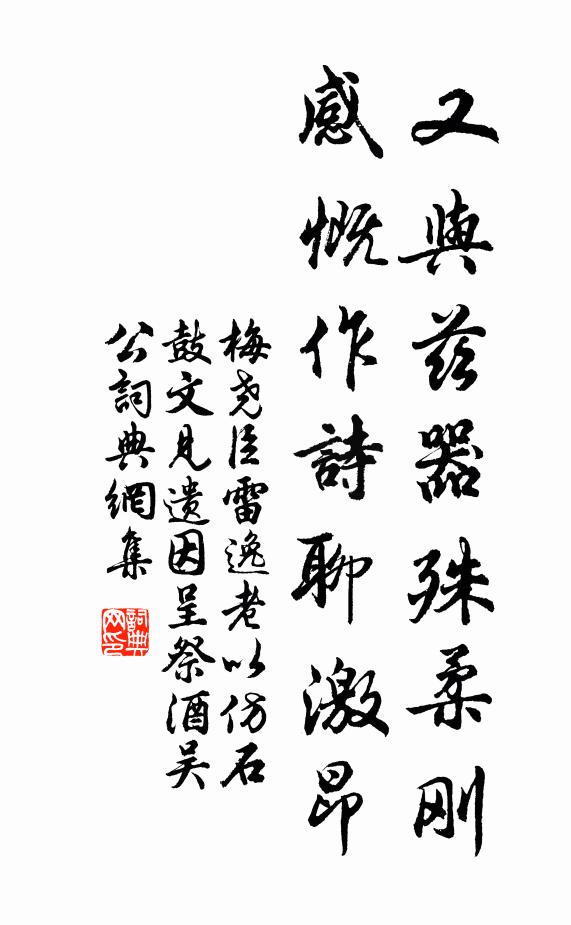 又與茲器殊柔剛
感慨作詩聊激昂
梅尧臣雷逸老以仿石
鼓文見遺因呈祭酒吴
公詞典網集
詞典
网印